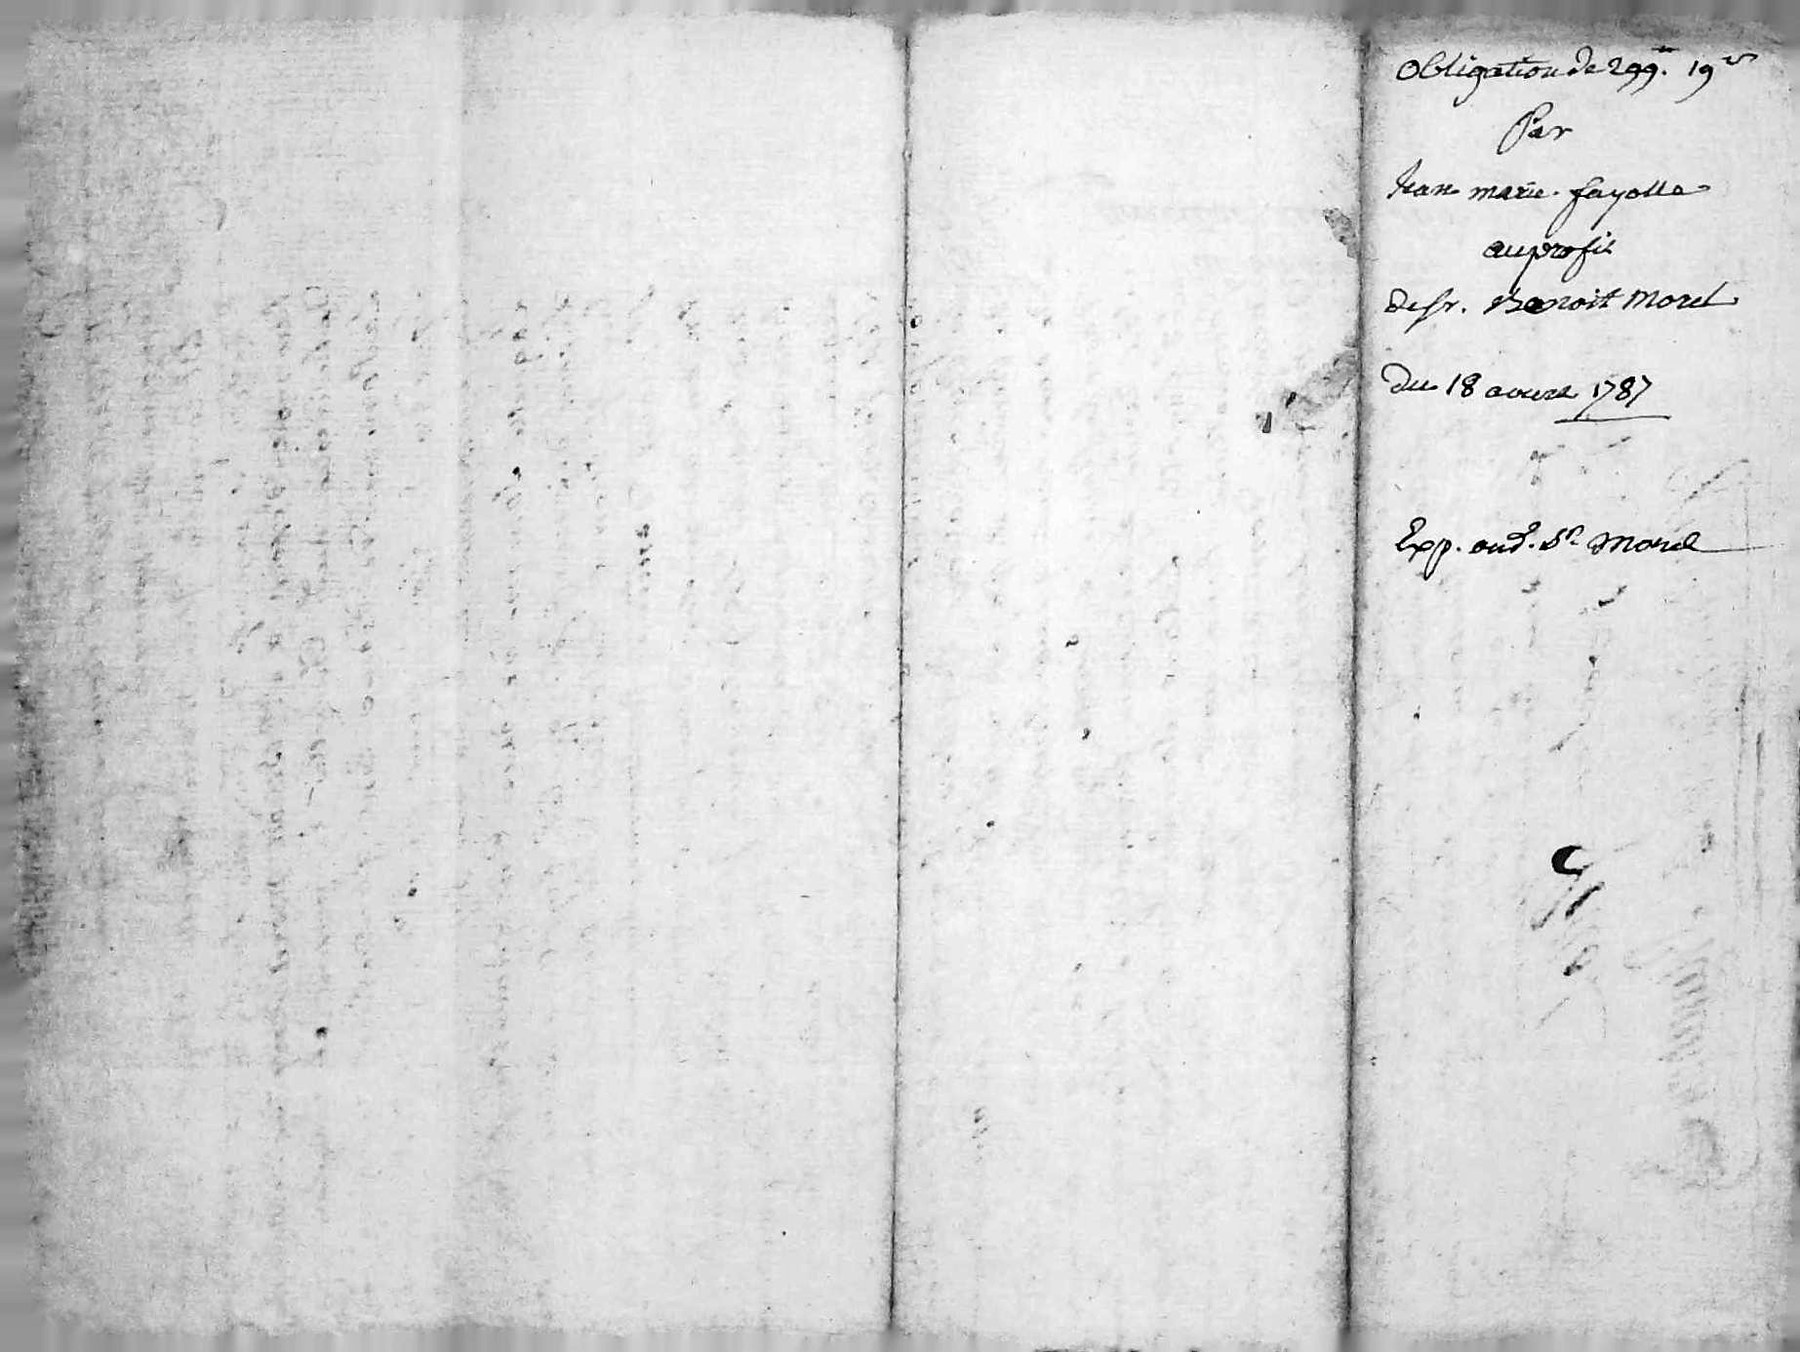 Obligation de 299.ᵗᵗ 19ˢ
Par
Jean marie fayolle
au profit
de sr. Benoit Morel
du 18 avril 1787
Exp. aud. Sr Morel